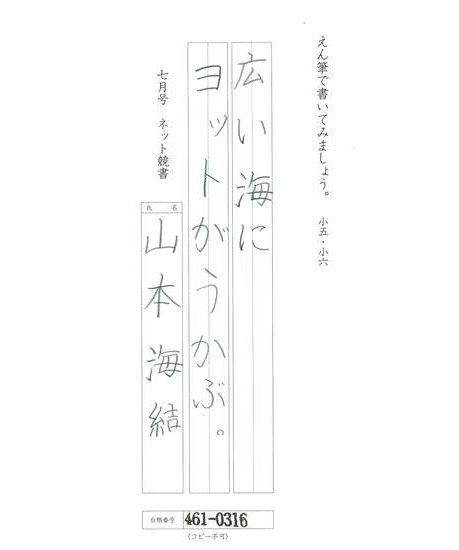 えん筆で書いてみましょう。 小五・小六
広い海に
ヨットがうかぶ。
七月号 ネット競書
氏名
山本海結
台帳番号 461-0316
（コピー不可）